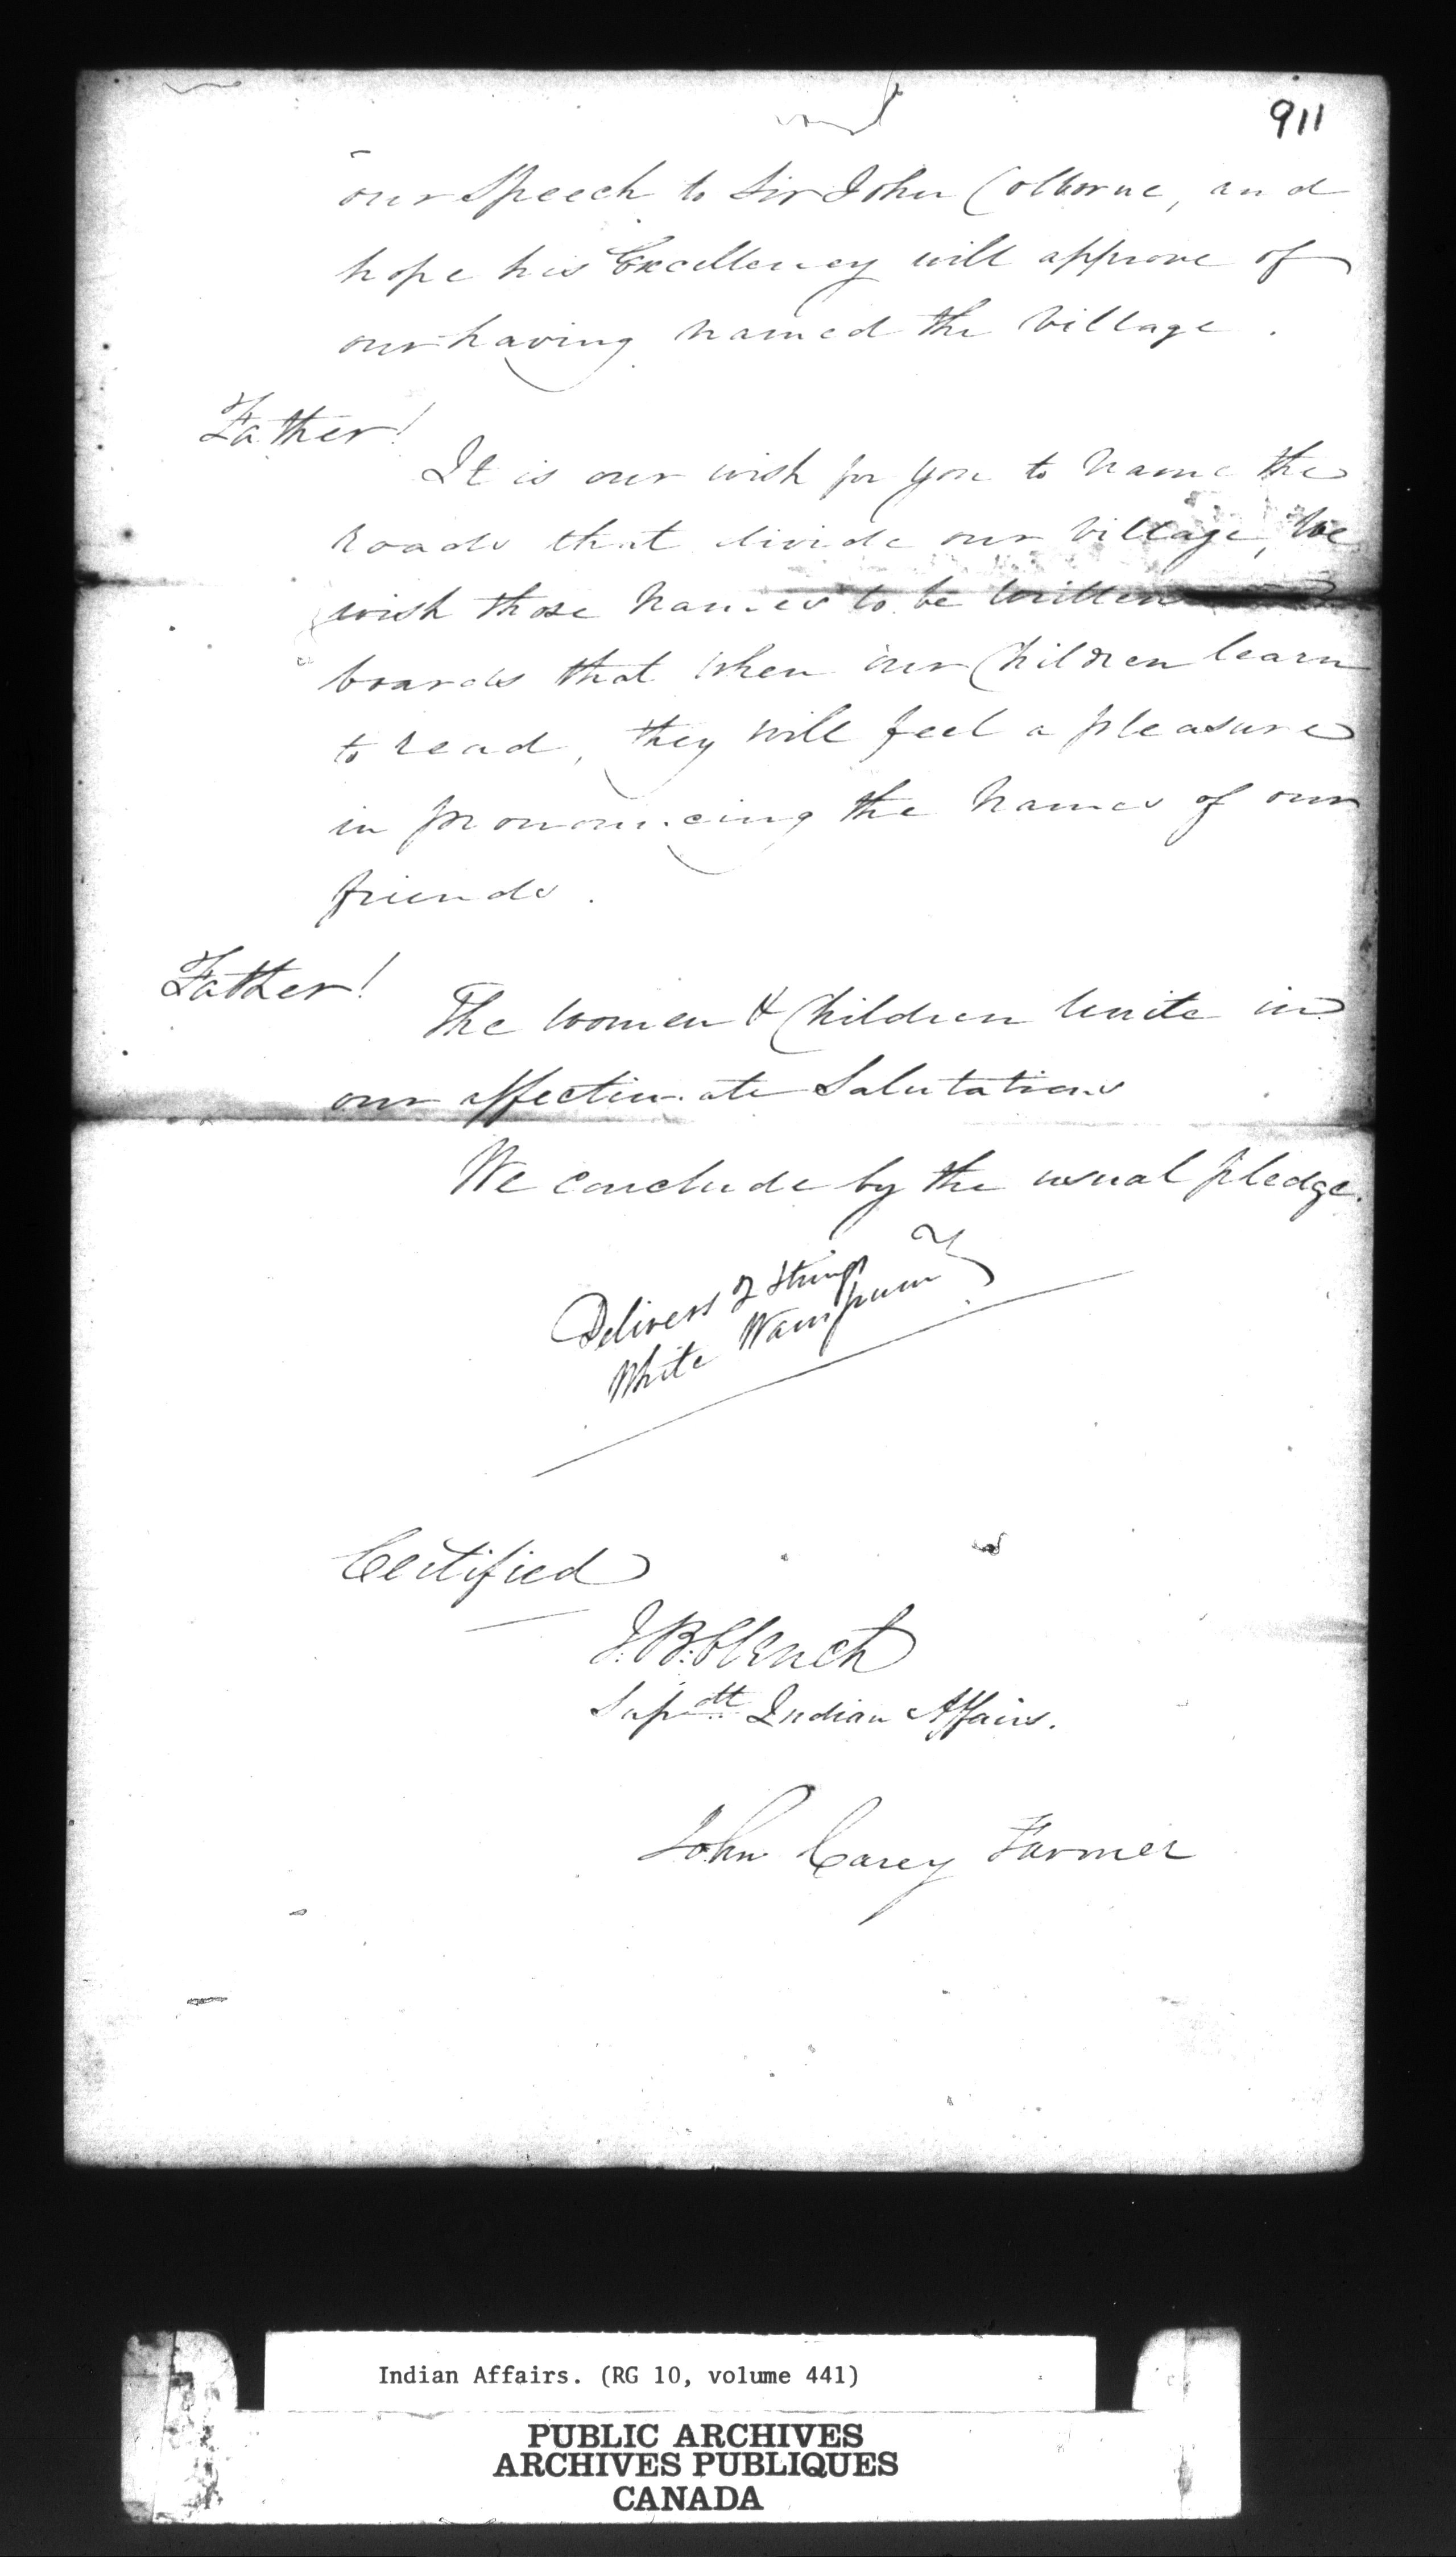 911
our Speech to Sir John Colborne, and
hope his Excellency will approve of
our having named the Village.
Father!
It is our wish for you to name the
roads that divide our Village, We
wish those names to be written
boards that when our Children learn
to read, they will feel a pleasure
in pronouncing the names of our
friends.
Father!
The women & Children Unite in
our affectionate Salutations
We conclude by the usual pledge.
Delivers 2 Strings
White Wampum
Certified
J. B. Clench
Supdtt Indian Affairs.
John Carey Farmer
Indian Affairs. (RG 10, volume 441)
PUBLIC ARCHIVES
ARCHIVES PUBLIQUES
CANADA